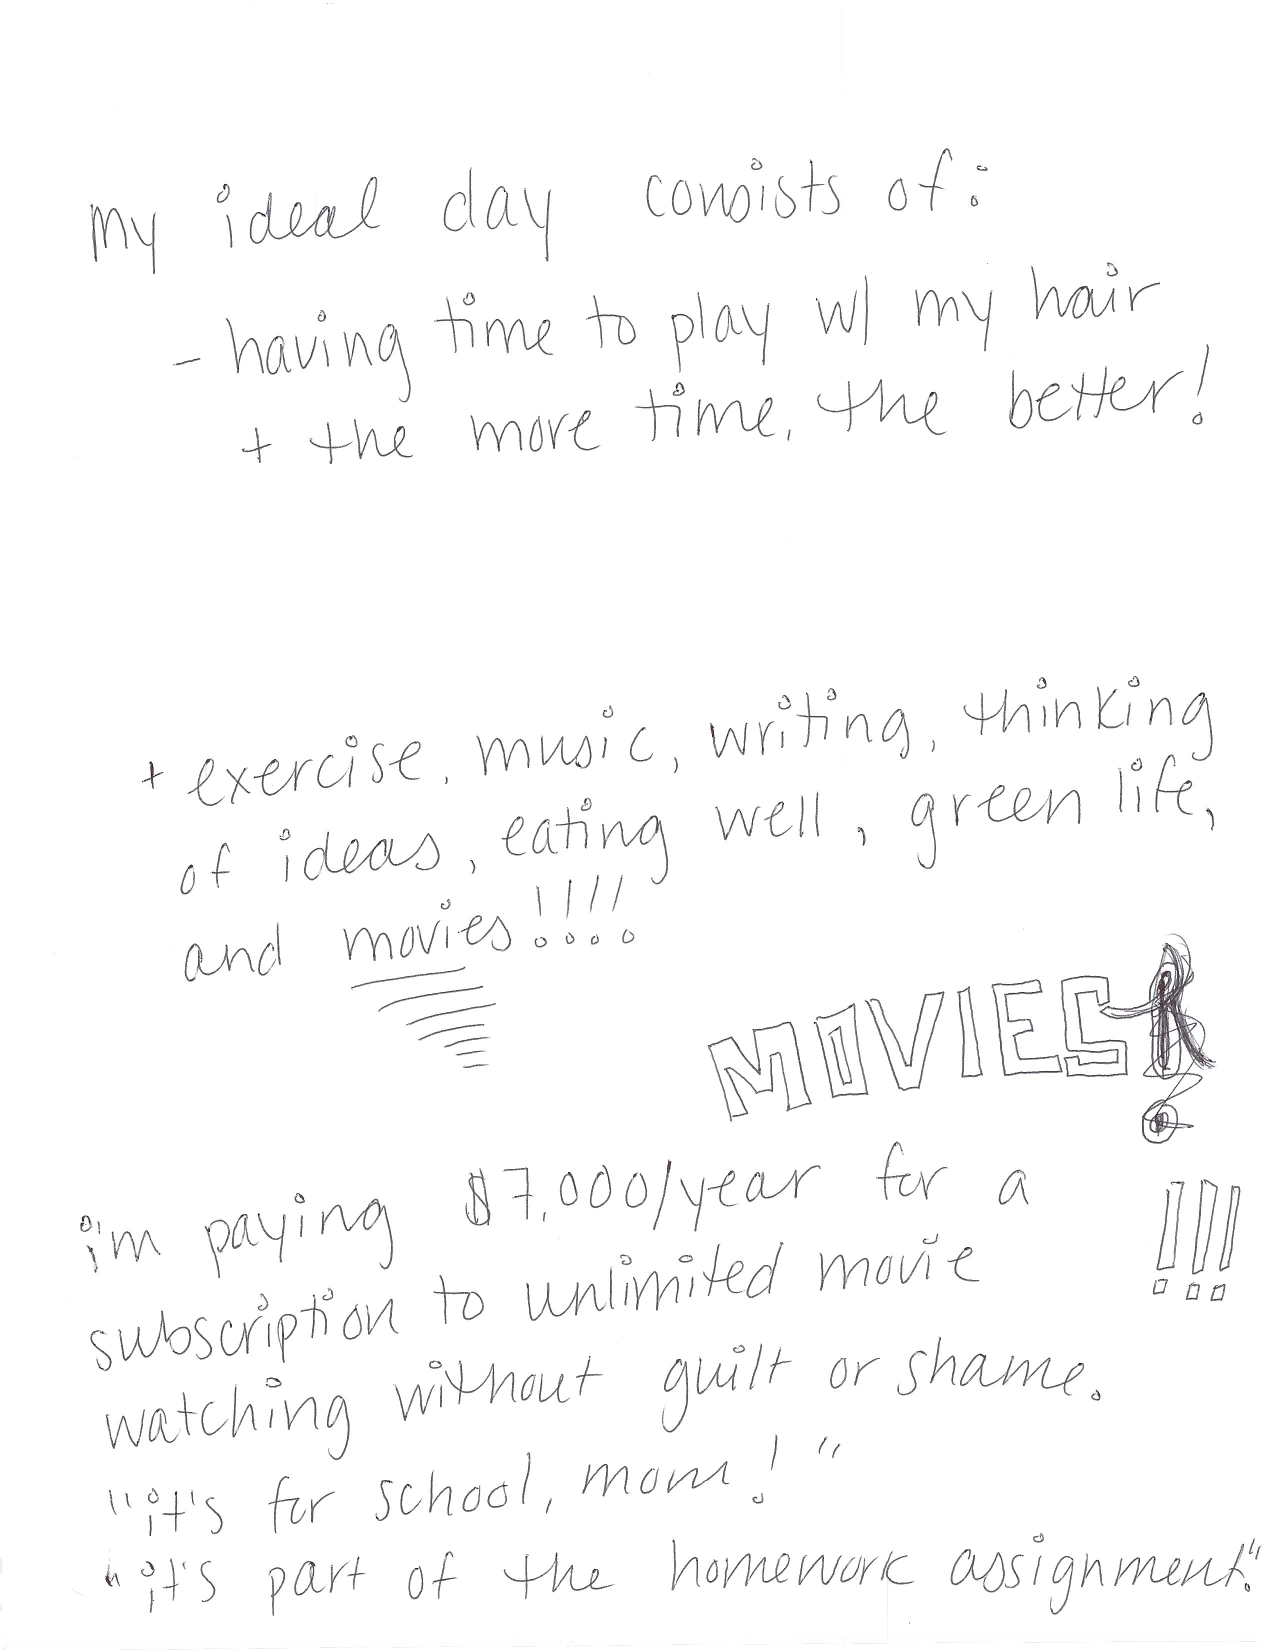 my ideal day consists of:
- having time to play w/ my hair
+ the more time, the better!
+ exercise, music, writing, thinking
of ideas, eating well, green life,
and movies!!!!
MOVIES!
!!!
i'm paying $7,000/year for a
subscription to unlimited movie
watching without guilt or shame.
"it's for school, mom!"
"it's part of the homework assignment."